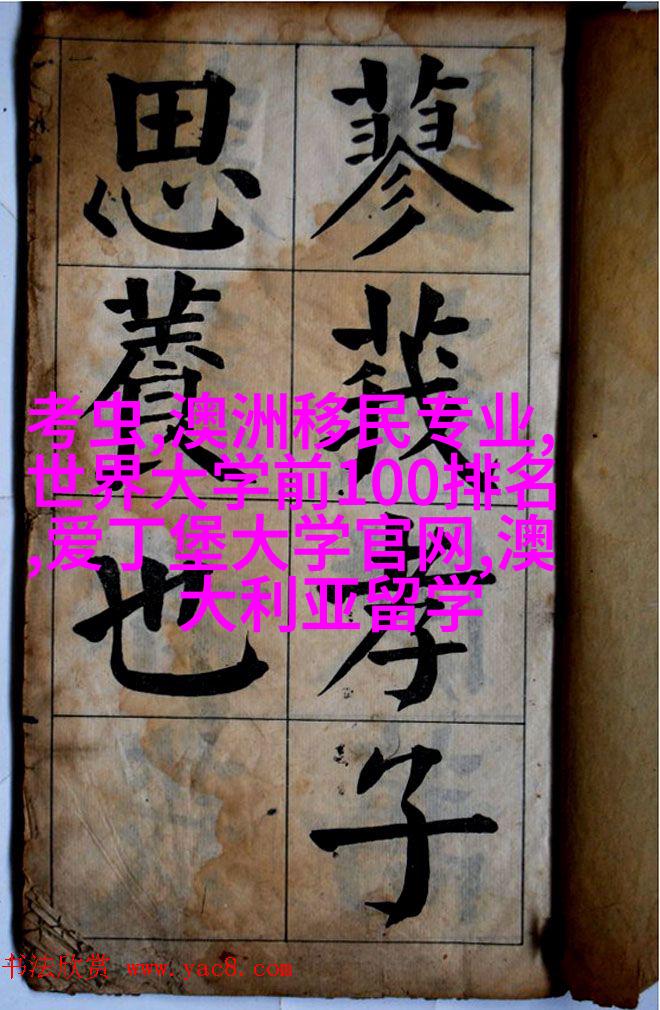 蓼莪孝子
思養也
考虫,澳洲移民专业,
世界大学前100排名
,爱丁堡大学官网,澳
大利亚留学
书法欣赏 www.yac8.com